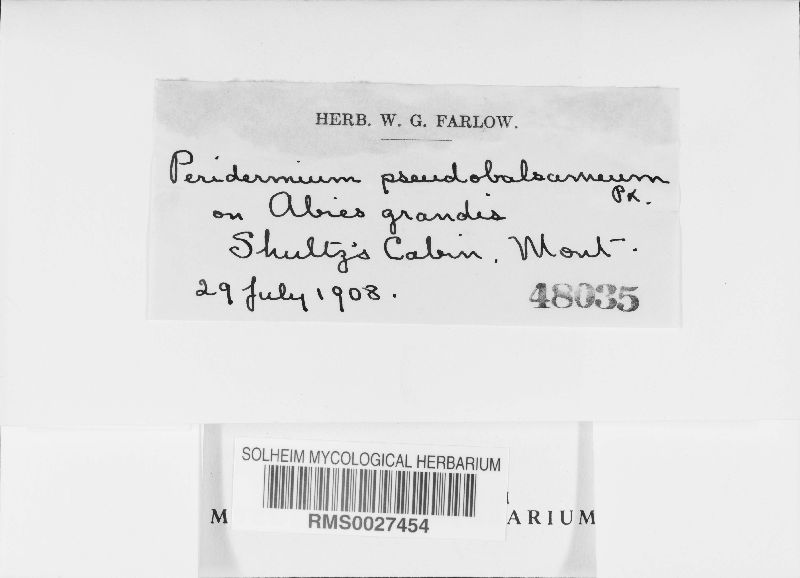 HERB. W. G. FARLOW.
Peridermium pseudobalsameum
Pk.
on Abies grandis
Shultz's Cabin, Mont.
29 July 1908.
48035
SOLHEIM MYCOLOGICAL HERBARIUM
RMS0027454
M ARIUM